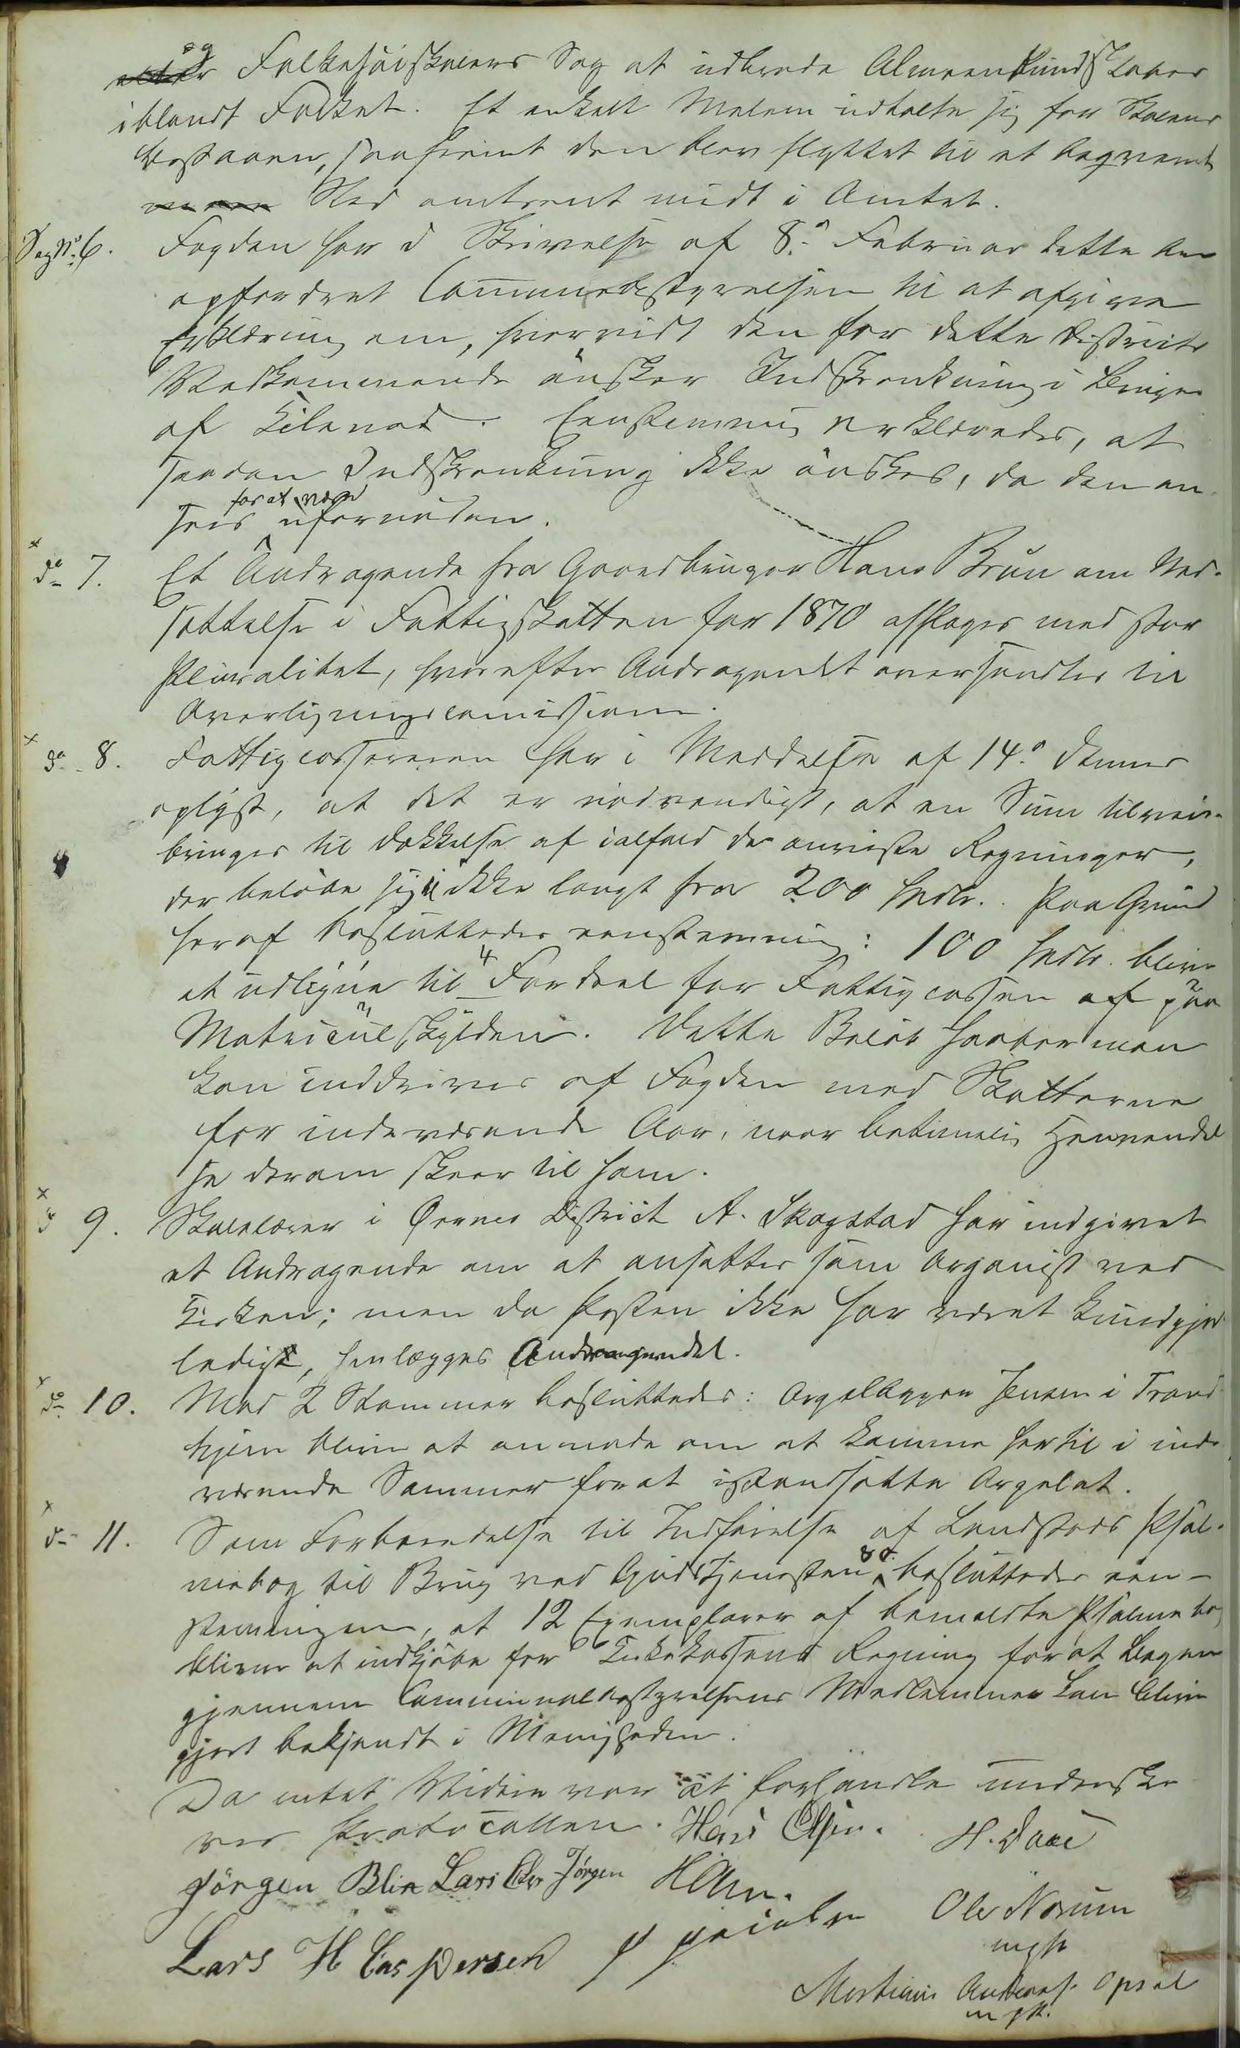 og Folkehöiskolens Sag at udbrede Almeenkundskaber
iblandt Folket. Et enkelt Medlem udtalte sig for Skolens
Bestaaen, saafremt den blev flyttet til et beqvemt
Sted omtrent midt i Amtet.
Sag No 6. Fogden har i Skrivelse af 8de Februar dette Aar
opfordret Communebestyrelsen til at afgive
Erklæring om, hvorvidt den for dette Districts
Vedkommende önsker Indskrænkning i Brugen
af Kilenod. Eenstemmig erklæredes, at
saadan Indskrænkning ikke önskes, da den an-
sees for at være ufornöden.
do 7. Et Andragende fra Gaardbruger Hans Brun om Ned-
sættelse i Fattigskatten for 1870 afsloges med stor
Pluralitet, hvorefter Andragendet oversendtes til
Overligningscomissionen.
do 8. Fattigcassereren har i Meddelse af 14de dennes
oplyst, at det er nödvendigt, at en Sum tilveie-
bringes til Dækkelse af ialfald de anviste Regninger,
der belöbe sig ikke langt fra 200 Spdlr. Paa Grund
heraf besluttedes eenstemmig: 100 Spdlr. bliver
at udligne til Fordeel for Fattigcassen af paa
Matriculskylden. Dette Belöb haaber man
kan inddrives af Fogden med Skatterne
for indeværende Aar, naar betimelig Henvendel
se derom skeer til ham.
do 9. Skolelærer i Örnes District A. Skogstad har indgivet
et Andragende om at ansættes som Organist ved
Kirken; men da Posten ikke har været kundgjort
ledig, henlægges Andragendet.
do 10. Med 2 Stemmer besluttedes: Orgelbygger Jensen i Trond
hjem bliver at anmode om at komme hertil i inde
værende Sommer for at istandsætte Orgelet.
do 11. Som Forberedelse til Indförelse af Landstads Psal-
mebog til Brug ved Gudstjenesten besluttedes een-
stemmigen, at 12 Exemplarer af bemeldte Psalmebog
bliver at indkjöbe for Kirkekassens Regning for at Bogen
gjennem Communalbestyrelsens Medlemmer kan blive
gjort bekjendt i Menigheden.
Da intet Videre var at forhandle underskre
ves Protocollen. Hans Olsen. H. Daae
Jörgen Blix Lars Jörgen
Lars H Caspersen Ole Norum
mgsk
Mortinius Andreas. Opsal
mgsk.